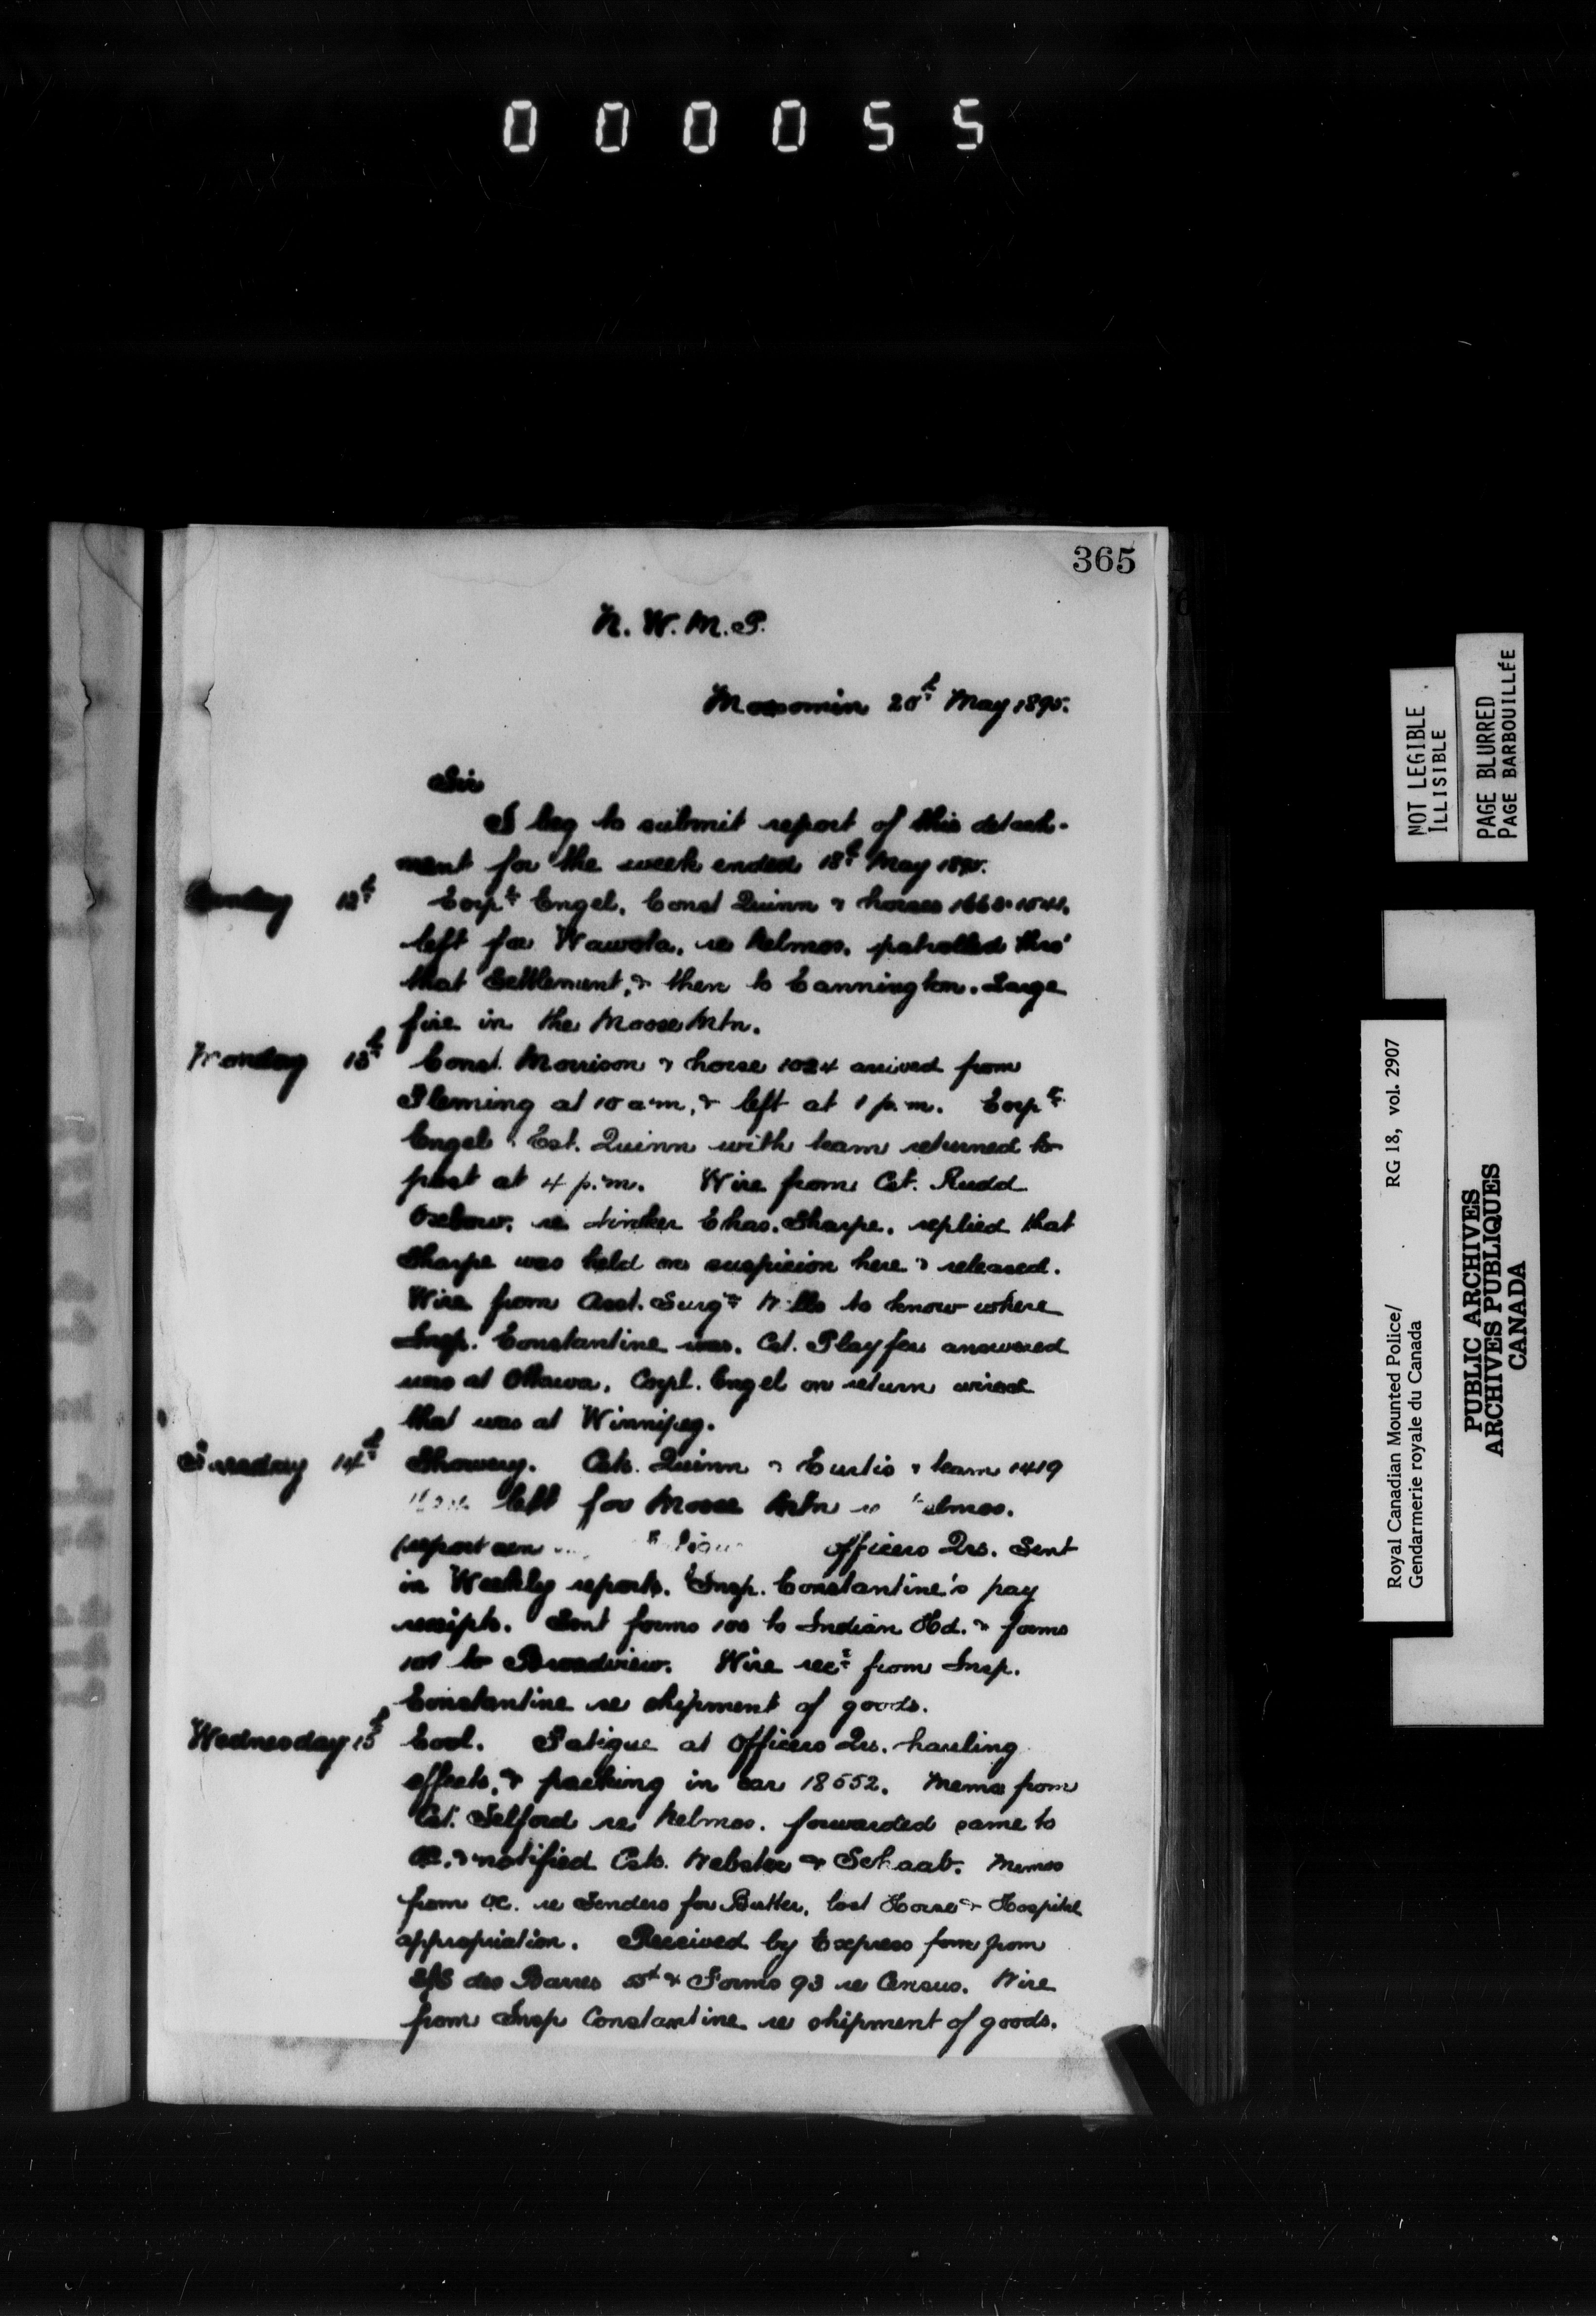 000055
365
N. W. M. P.
Moosomin 20th May 1895.
Sir
I beg to submit report of this detach-
ment for the week ended 18th May 1895.
Sunday 12th Corpl Engel, Const Quinn & horses
left for Wawota, re Kelmos. patrolled thro'
that Settlement, & then to Cannington. Large
fire in the Moose Mtn.
Monday 13th Const. Morrison & horse 1024 arrived from
Fleming at 10 a.m, & left at 1 p.m. Corpl
Engel & Cst. Quinn with team returned to
post at 4 p.m. Wire from Cst. Rudd
Oxbow, re tinker Chas. Sharpe. replied that
Sharpe was held on suspicion here & released.
Wire from Asst. Surgn Wills to know where
Insp. Constantine was. Cst. Playfer answered
was at Ottawa, Corpl. Engel on return wired
that was at Winnipeg.
Tuesday 14th Showery. Csts. Quinn & Curtis & team 1419
left for Moose Mtn re Kelmos.
officers Qrs. Sent
in Weekly reports. Insp. Constantine's pay
receipts. Sent forms 100 to Indian Hd. & forms
101 to Broadview. Wire recd from Insp.
Constantine re shipment of goods.
Wednesday 15th Cool. Fatigue at Officers Qrs. hauling
effects, & packing in car 18552. Memo from
Cst. Telford re Kelmos. forwarded same to
OC. & notified Csts. Webster & Schaab. Memos
from OC. re Tenders for Butter, lost Horse & Hospital
appropriation. Received by Express from
S/S des Barres & Forms 93 re Census. Wire
from Insp Constantine re shipment of goods.
NOT LEGIBLE
ILLISIBLE
PAGE BLURRED
PAGE BARBOUILLÉE
Royal Canadian Mounted Police/ RG 18, vol. 2907
Gendarmerie royale du Canada
PUBLIC ARCHIVES
ARCHIVES PUBLIQUES
CANADA